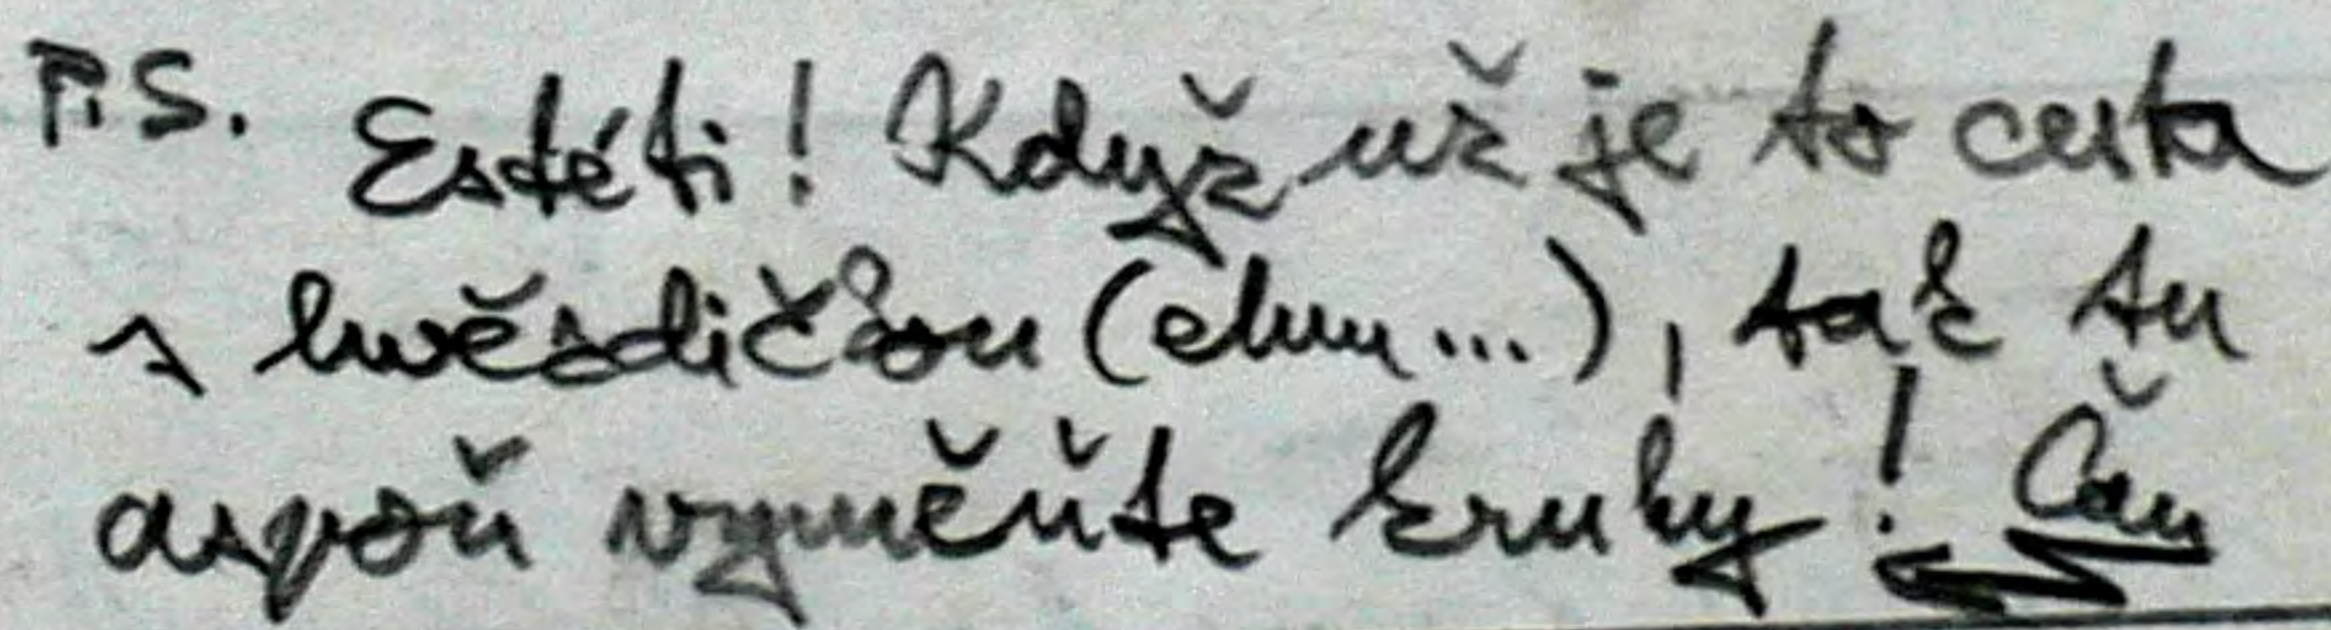 P.S. Estéti! Když už je to cesta
s hvězdičkou (ehm...), tak tu
aspoň vyměňte kruhy! Čau